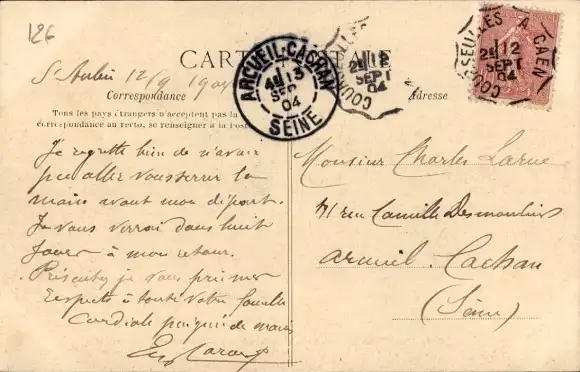 126
CARTE POSTALE
St Aubin 12/9 1904
Correspondance
Adresse
Tous les pays étrangers n'acceptent pas la
correspondance au recto, se renseigner à la Poste
ARCUEIL-CACHAN
4E 13
SEPT
04
SEINE
COURSEULLES A CAEN
2E 12
SEPT
04
COURSEULLES A CAEN
2E 12
SEPT
04
Je regrette bien de n'avoir
pu aller vous serrer la
main avant mon départ.
Je vous verrai dans huit
jours à mon retour.
Présentez je vous prie mes
respects à toute votre famille
Cordiale poignée de main
Monsieur Charles Larue
41 rue Camille Desmoulins
Arcueil-Cachan
(Seine)